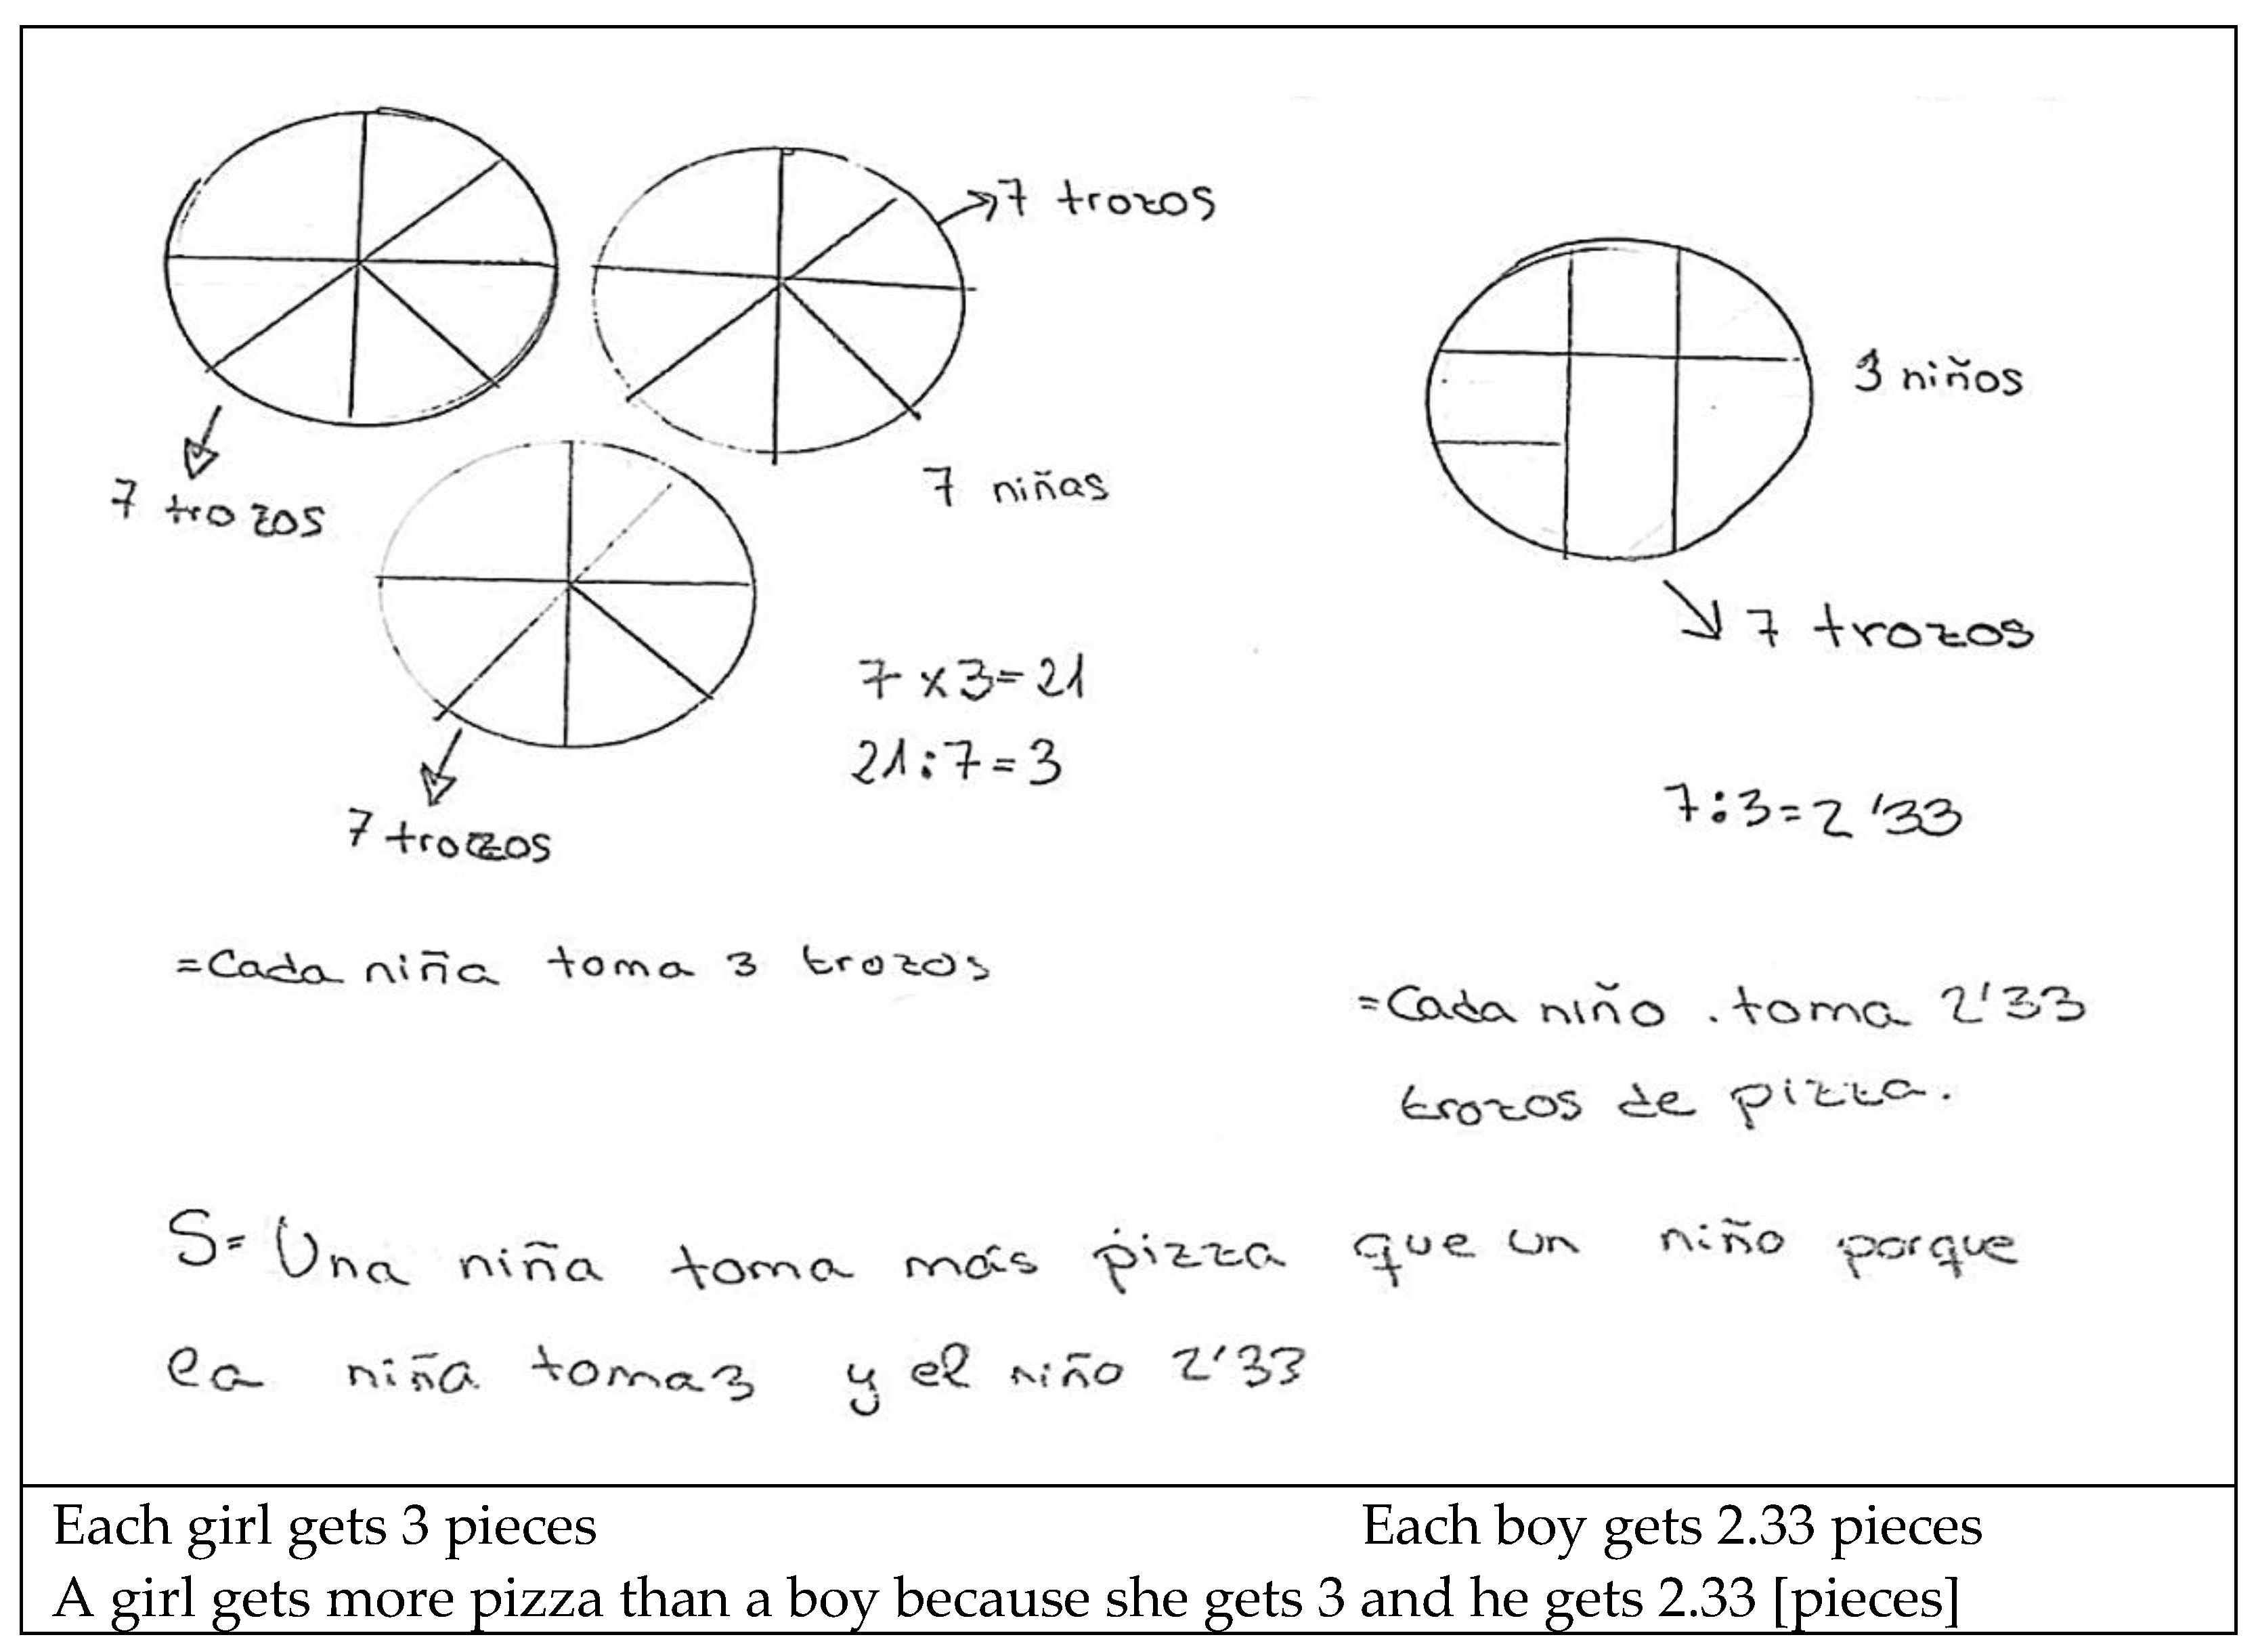 7 trozos
7 trozos
7 niñas
7 trozos
7 x 3 = 21
21 : 7 = 3
= Cada niña toma 3 trozos
3 niños
7 trozos
7 : 3 = 2'33
= Cada niño . toma 2'33
trozos de pizza.
S = Una niña toma más pizza que un niño porque
la niña toma 3 y el niño 2'33
Each girl gets 3 pieces
Each boy gets 2.33 pieces
A girl gets more pizza than a boy because she gets 3 and he gets 2.33 [pieces]